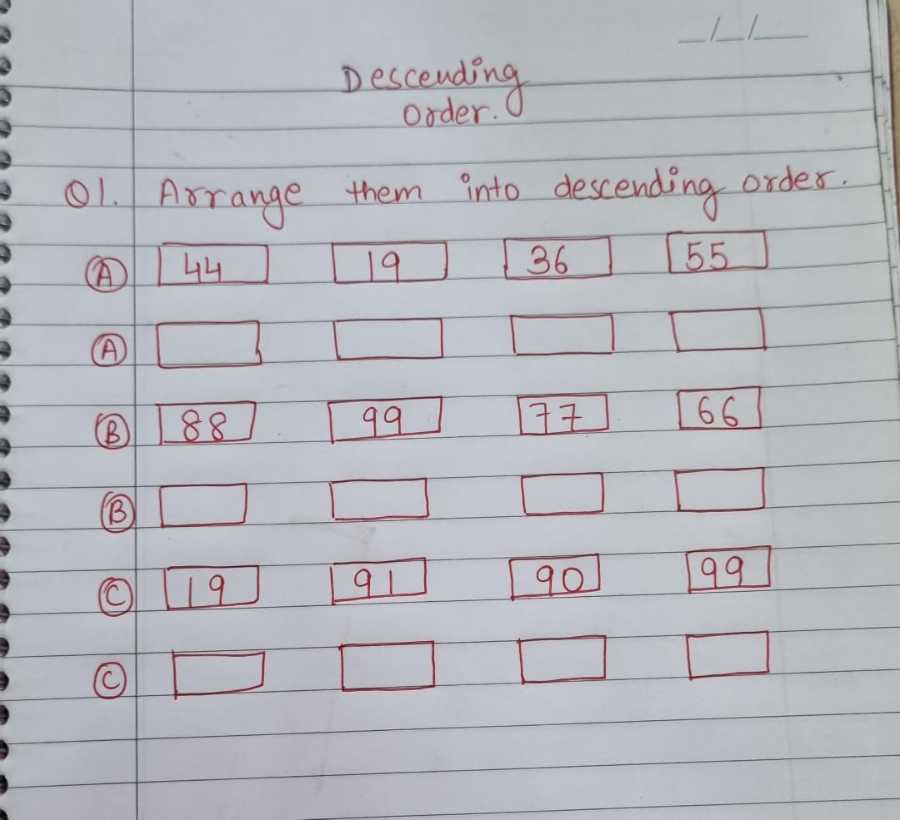 __/__/____
Descending
Order.
Q1. Arrange them into descending order.
(A) 44 19 36 55
(A)
(B) 88 99 77 66
(B)
(C) 19 91 90 99
(C)